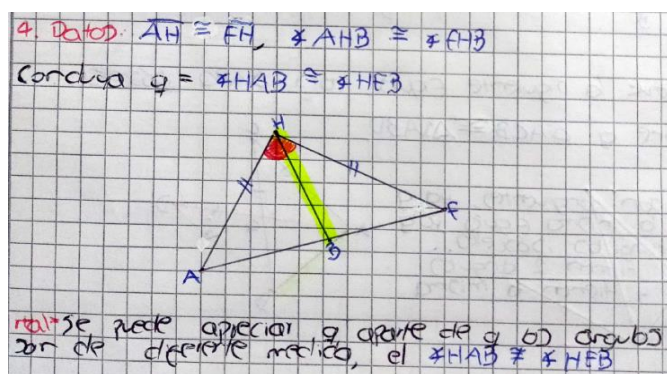 4. Datos. AH ≅ FH, ∡AHB ≅ ∡FHB
Concluya q= ∡HAB ≅ ∡HFB
H
F
B
A
rta/= se puede apreciar q aparte de q los angulos
son de diferente medida, el ∡HAB ≠ ∡HFB